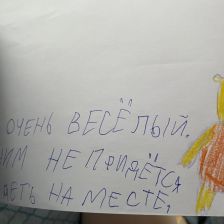 ОЧЕНЬ ВЕСЁЛЫЙ.
НИМ НЕ ПРИДЁТСЯ
ДЕТЬ НА МЕСТЕ,